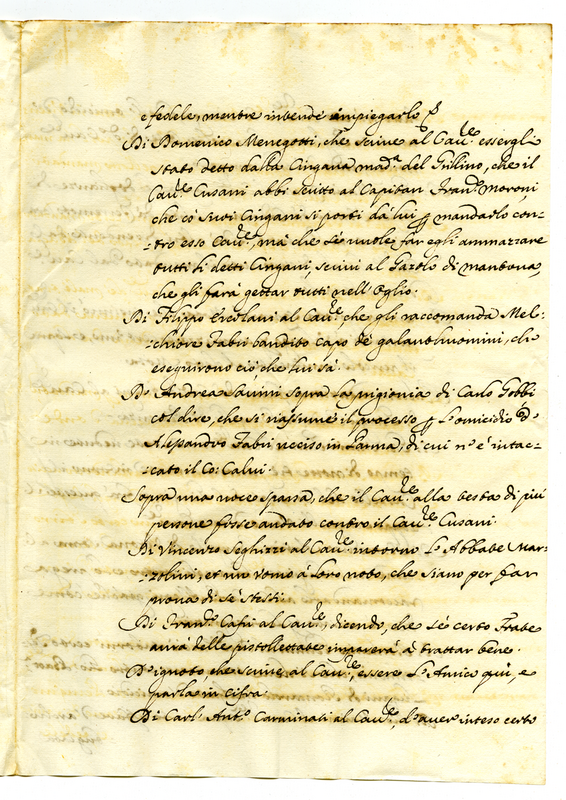 e fedele, mentre intende impiegarlo
Di Domenico Menegotti, che scrive al Cau.re essergli
stato detto dalla Cingana mad.a del Grilino, che il
Cau.re Cusani abbi scritto al Capitan Fran.co Moroni,
che co' suoi Cingani si porti da lui p mandarlo con-
-tro esso Cau.re, mà che se vuole far egli ammazzare
tutti li detti Cingani, scrivi al Gazolo di Mantova,
che gli farà gettar tutti nell'Oglio.
Di Filippo Ercolani al Cau.re che gli raccomanda Mel-
-chiore Fabri bandito capo de galanthuomini, che
eseguirono ciò che lui sà.
D' Andrea sopra la prigionia di Carlo Gobbi
col dire, che si riassume il processo p l'omicidio d'
Alessandro Fabri ucciso in Parma, di cui n'è intac-
-cato il Co: Calvi.
Sopra una voce sparsa, che il Cau.re alla testa di più
persone fosse andato contro il Cau.re Cusani.
Di Vincenzo Seghizzi al Cau.re intorno l'Abbate Mar-
-zolini, et un uomo à loro noto, che siano per far
prova di sè stessi.
Di Fran.co Cafri al Cau.re, dicendo, che se certo Frate
avrà delle pistollettate imparerà à trattar bene.
D'ignoto, che scrive al Cau.re, essere l'Amico quì, e
parla in cifra.
Di Carl' Ant.o Carminati al Cau.re, d'aver inteso certo